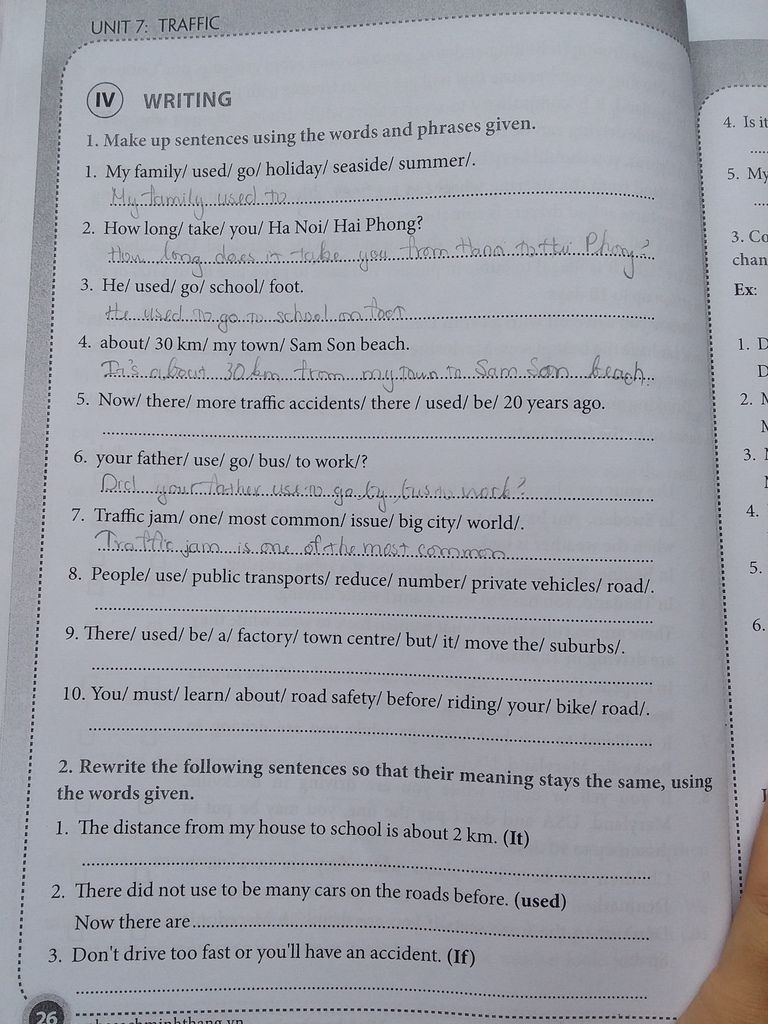 UNIT 7: TRAFFIC
IV WRITING
1. Make up sentences using the words and phrases given.
1. My family/ used/ go/ holiday/ seaside/ summer/.
My family used to
2. How long/ take/ you/ Ha Noi/ Hai Phong?
How long does it take you from Hanoi to Hai Phong?
3. He/ used/ go/ school/ foot.
He used to go to school on foot
4. about/ 30 km/ my town/ Sam Son beach.
It's about 30 km from my town to Sam Son beach.
5. Now/ there/ more traffic accidents/ there / used/ be/ 20 years ago.
6. your father/ use/ go/ bus/ to work/?
Did your father use to go by bus to work?
7. Traffic jam/ one/ most common/ issue/ big city/ world/.
Traffic jam is one of the most common
8. People/ use/ public transports/ reduce/ number/ private vehicles/ road/.
9. There/ used/ be/ a/ factory/ town centre/ but/ it/ move the/ suburbs/.
10. You/ must/ learn/ about/ road safety/ before/ riding/ your/ bike/ road/.
2. Rewrite the following sentences so that their meaning stays the same, using
the words given.
1. The distance from my house to school is about 2 km. (It)
2. There did not use to be many cars on the roads before. (used)
Now there are
3. Don't drive too fast or you'll have an accident. (If)
26
4. Is it
5. My
3. Co
chan
Ex:
1. D
D
2.
3.
4.
5.
6.